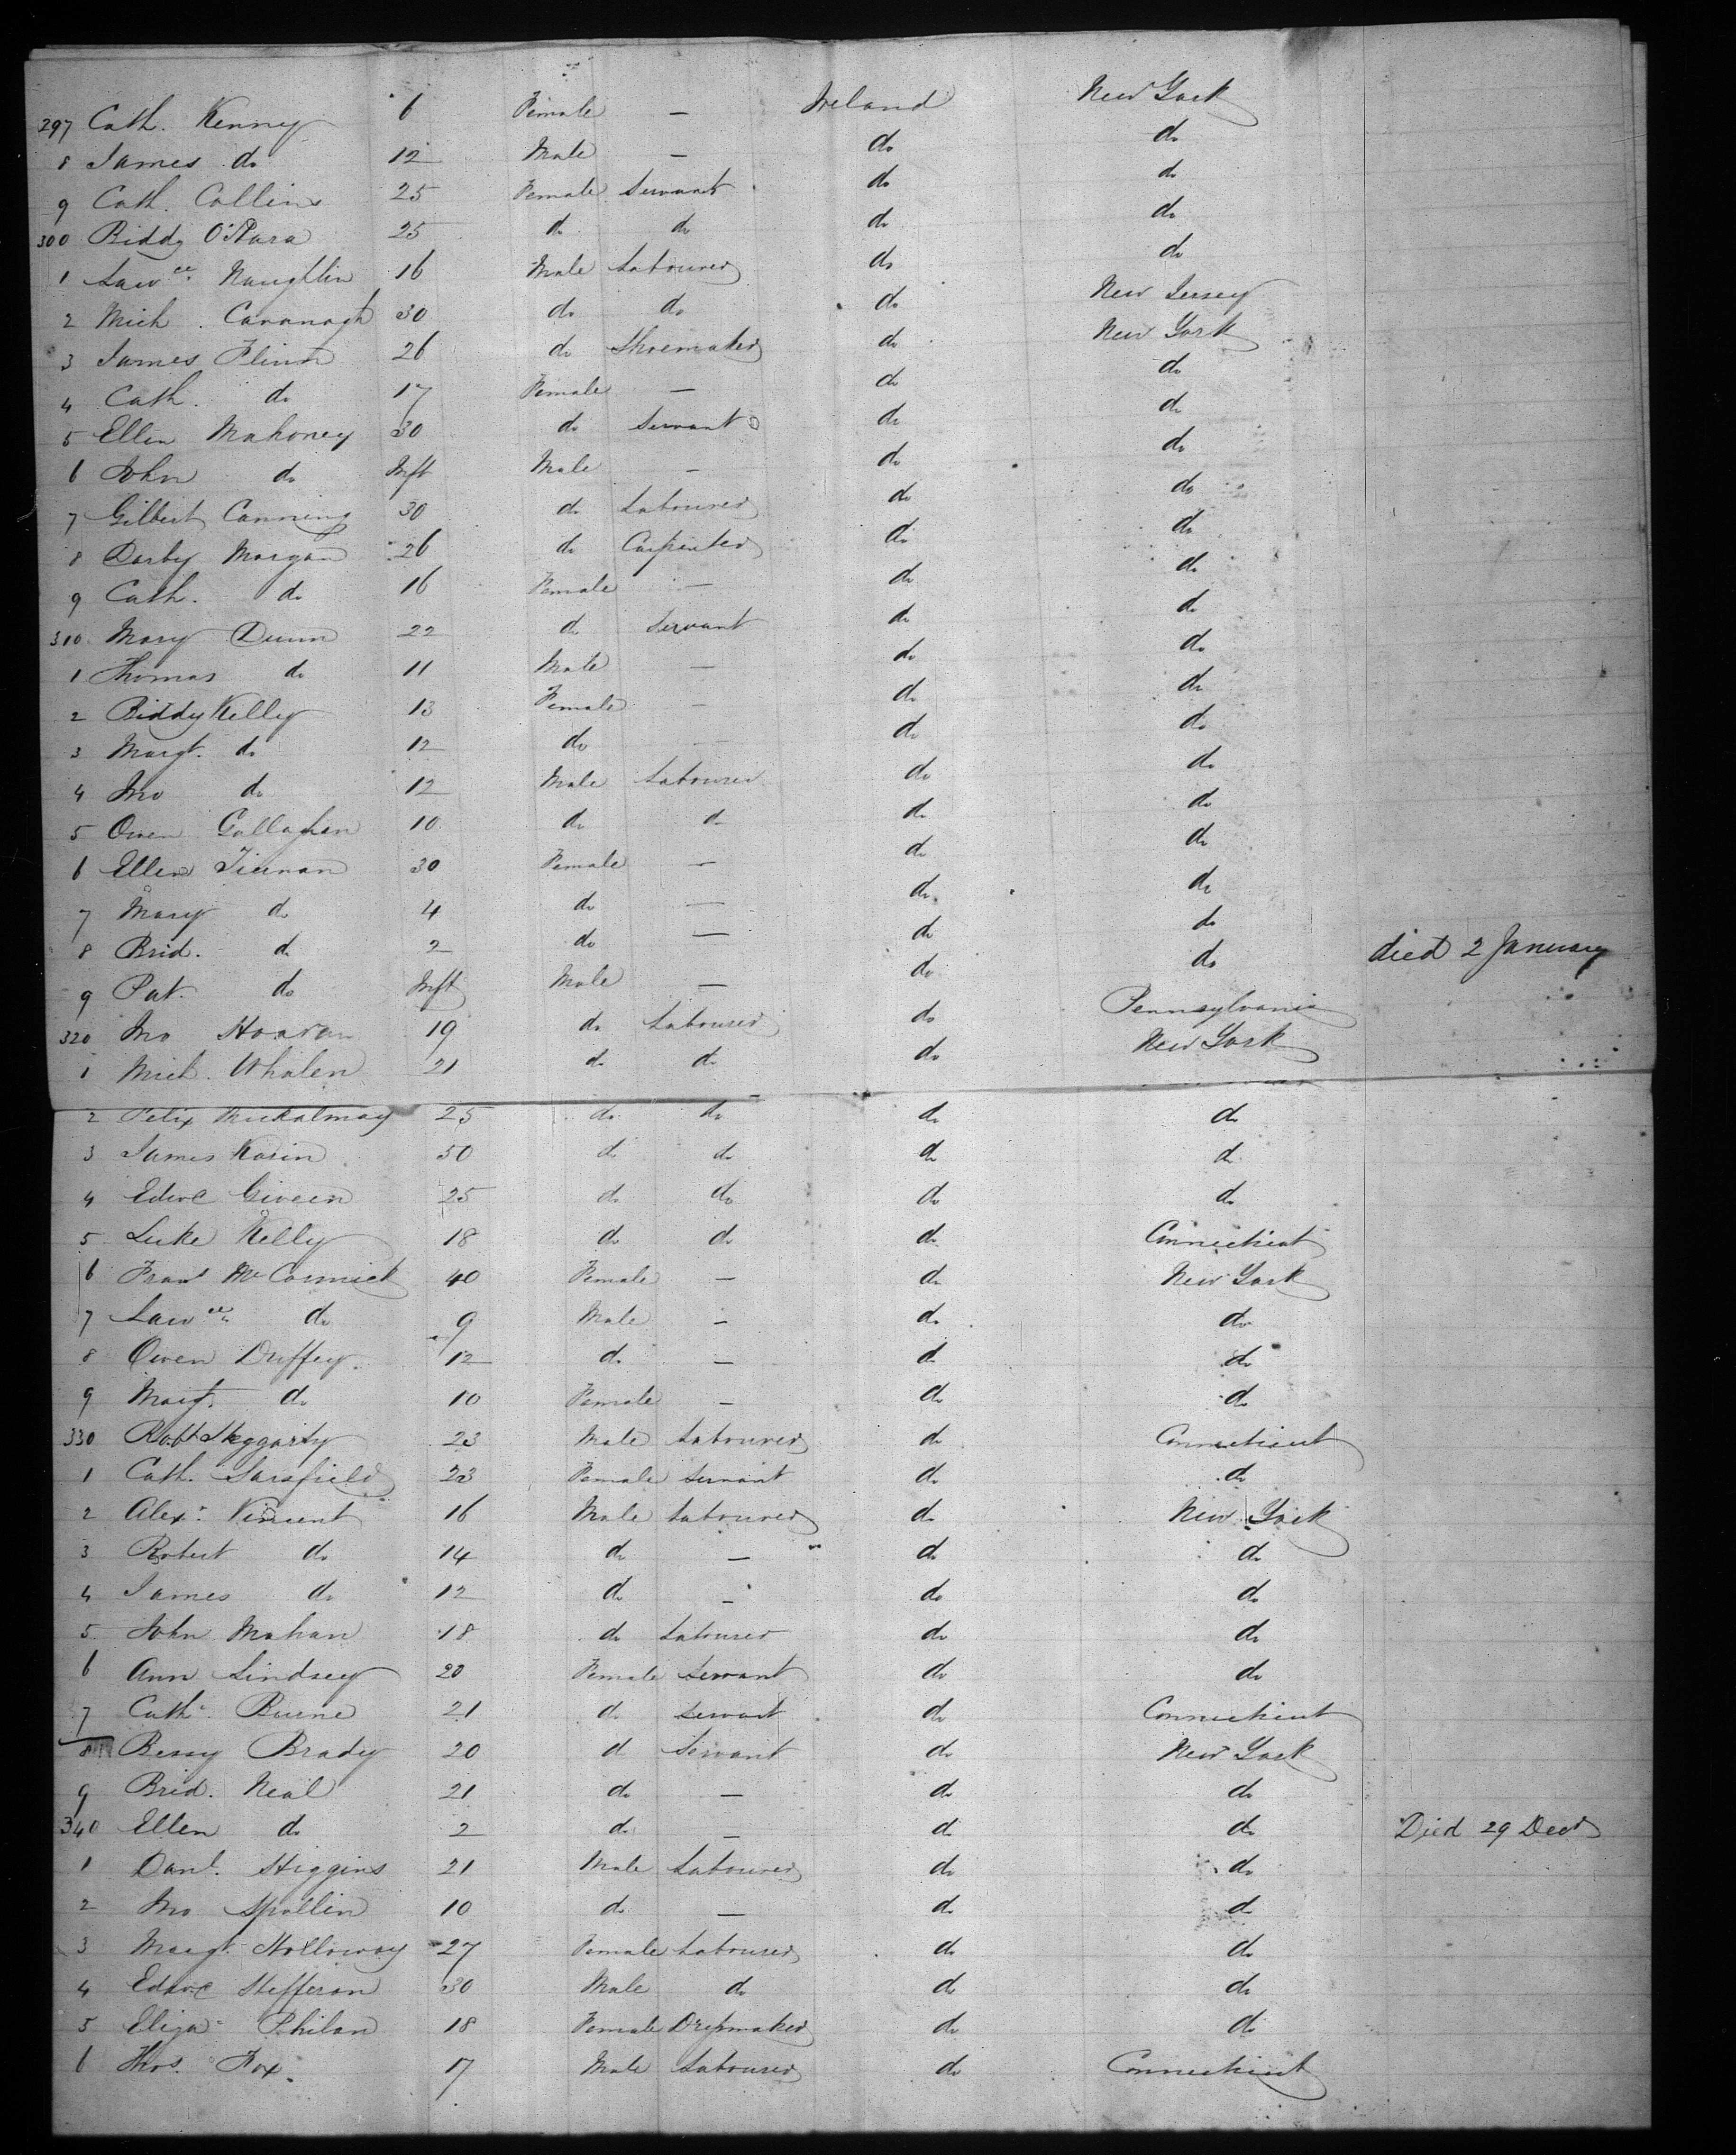 297 Cath. Kenney 6 Female — Ireland New York
8 James do 12 Male — do do
9 Cath. Collins 25 Female Servant do do
300 Biddy O'Hara 25 do do do do
1 Lawce. Naughlin 16 Male Labourer do do
2 Mich. Cavanagh 30 do do do New Jersey
3 James Flinn 26 do Shoemaker do New York
4 Cath. do 17 Female — do do
5 Ellen Mahoney 30 do Servant do do
6 John do Inft Male — do do
7 Gilbert Canning 30 do Labourer do do
8 Darby Morgan 26 do Carpenter do do
9 Cath. do 16 Female — do do
310 Mary Dunn 22 do Servant do do
1 Thomas do 11 Male — do do
2 Biddy Kelly 13 Female — do do
3 Margt. do 12 do — do do
4 Jno do 12 Male Labourer do do
5 Owen Gallaghan 10 do do do do
6 Ellen Tiernan 30 Female — do do
7 Mary do 4 do — do do
8 Brid. do 2 do — do do died 2 January
9 Pat. do Inft Male — do do
320 Jno 19 do Labourer do Pennsylvania
1 Mich. Whalen 21 do do do New York
2 Felix 25 do do do do
3 James 50 do do do do
4 Edwd Giveen 25 do do do do
5 Luke Kelly 18 do do do Connecticut
6 Frans McCormick 40 Female — do New York
7 Lawce. do 9 Male — do do
8 Owen Duffey. 12 do — do do
9 Margt. do 10 Female — do do
330 Robt Heggarty 23 Male Labourer do Connecticut
1 Cath. Sarsfield 23 Female Servant do do
2 Alexr. Vincent 16 Male Labourer do New York
3 Robert do 14 do — do do
4 James do 12 do — do do
5 John Mahan 18 do Labourer do do
6 Ann Lindsey 20 Female Servant do do
7 Cathe. Burne 21 do Servant do Connecticut
8 Bessy Brady 20 do Servant do New York
9 Brid. Neal 21 do — do do
340 Ellen do 2 do — do do Died 29 Decr
1 Danl. Higgins 21 Male Labourer do do
2 Jno Spollin 10 do — do do
3 Margt. Holloway 27 Female Labourer do do
4 Edwd Hefferon 30 Male do do do
5 Eliza Philan 18 Female Dressmaker do do
6 Thos. Fox. 17 Male Labourer do Connecticut